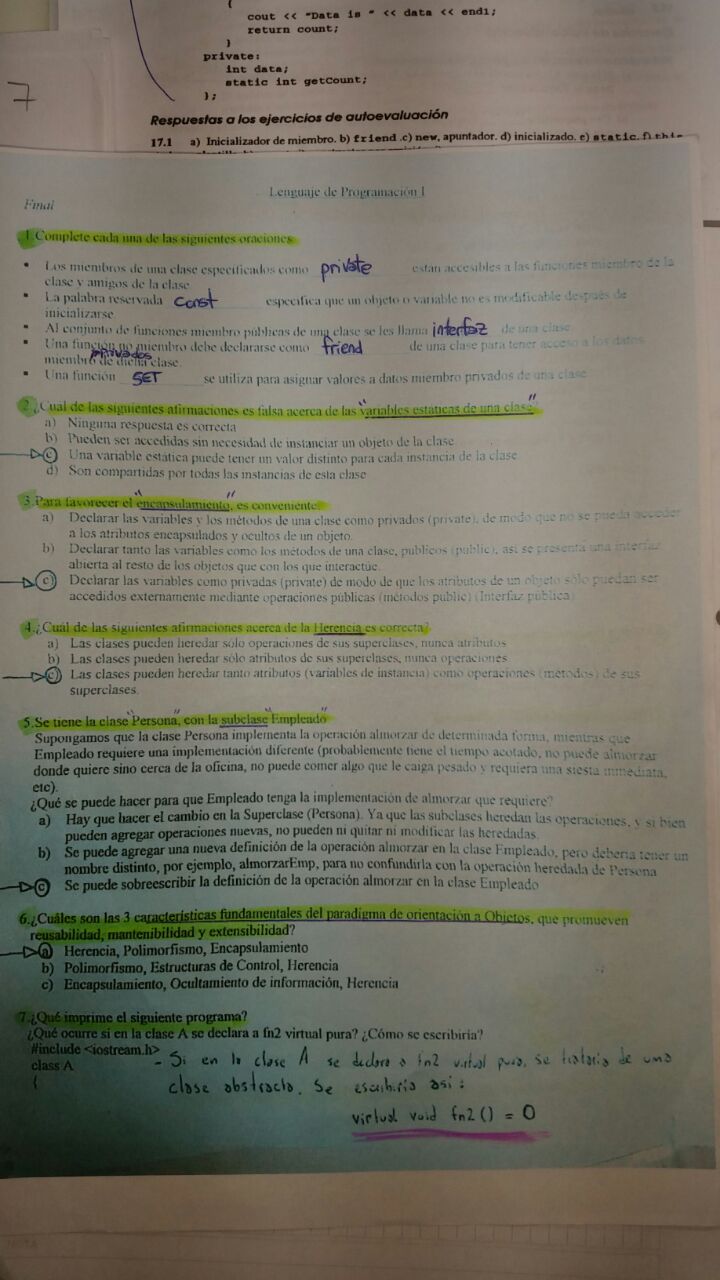 {
cout << "Data is " << data << endl;
return count;
}
private:
int data;
static int getCount;
};
7
Respuestas a los ejercicios de autoevaluación
17.1 a) Inicializador de miembro. b) friend .c) new, apuntador. d) inicializado. e) static. f) this
Lenguaje de Programación I
Final
1.Complete cada una de las siguientes oraciones
▪ Los miembros de una clase especificados como private están accesibles a las funciones miembro de la
clase y amigos de la clase.
▪ La palabra reservada const especifica que un objeto o variable no es modificable después de
inicializarse.
▪ Al conjunto de funciones miembro públicas de una clase se les llama interfaz de una clase.
▪ Una función no miembro debe declararse como friend de una clase para tener acceso a los datos
privados
miembro de dicha clase.
▪ Una función SET se utiliza para asignar valores a datos miembro privados de una clase
2.¿Cual de las siguientes afirmaciones es falsa acerca de las "variables estáticas de una clase"
a) Ninguna respuesta es correcta
b) Pueden ser accedidas sin necesidad de instanciar un objeto de la clase
c) Una variable estática puede tener un valor distinto para cada instancia de la clase.
d) Son compartidas por todas las instancias de esta clase
3.Para favorecer el "encapsulamiento", es conveniente:
a) Declarar las variables y los métodos de una clase como privados (private), de modo que no se pueda acceder
a los atributos encapsulados y ocultos de un objeto.
b) Declarar tanto las variables como los métodos de una clase, publicos (public), asi se presenta una interfaz
abierta al resto de los objetos que con los que interactúe.
c) Declarar las variables como privadas (private) de modo de que los atributos de un objeto sólo puedan ser
accedidos externamente mediante operaciones públicas (métodos public) (Interfaz pública)
4.¿Cuál de las siguientes afirmaciones acerca de la Herencia es correcta?
a) Las clases pueden heredar sólo operaciones de sus superclases, nunca atributos
b) Las clases pueden heredar sólo atributos de sus superclases, nunca operaciones
c) Las clases pueden heredar tanto atributos (variables de instancia) como operaciones (métodos) de sus
superclases.
5.Se tiene la clase "Persona", con la subclase "Empleado"
Supongamos que la clase Persona implementa la operación almorzar de determinada forma, mientras que
Empleado requiere una implementación diferente (probablemente tiene el tiempo acotado, no puede almorzar
donde quiere sino cerca de la oficina, no puede comer algo que le caiga pesado y requiera una siesta inmediata,
etc).
¿Qué se puede hacer para que Empleado tenga la implementación de almorzar que requiere?
a) Hay que hacer el cambio en la Superclase (Persona). Ya que las subclases heredan las operaciones, y si bien
pueden agregar operaciones nuevas, no pueden ni quitar ni modificar las heredadas.
b) Se puede agregar una nueva definición de la operación almorzar en la clase Empleado, pero debería tener un
nombre distinto, por ejemplo, almorzarEmp, para no confundirla con la operación heredada de Persona
c) Se puede sobreescribir la definición de la operación almorzar en la clase Empleado
6.¿Cuáles son las 3 características fundamentales del paradigma de orientación a Objetos, que promueven
reusabilidad, mantenibilidad y extensibilidad?
a) Herencia, Polimorfismo, Encapsulamiento
b) Polimorfismo, Estructuras de Control, Herencia
c) Encapsulamiento, Ocultamiento de información, Herencia
7.¿Qué imprime el siguiente programa?
¿Qué ocurre si en la clase A se declara a fn2 virtual pura? ¿Cómo se escribiría?
#include <iostream.h>
class A
{
- Si en la clase A se declara a fn2 virtual pura, se trataría de una
clase abstracta. Se escribiría así:
virtual void fn2() = 0